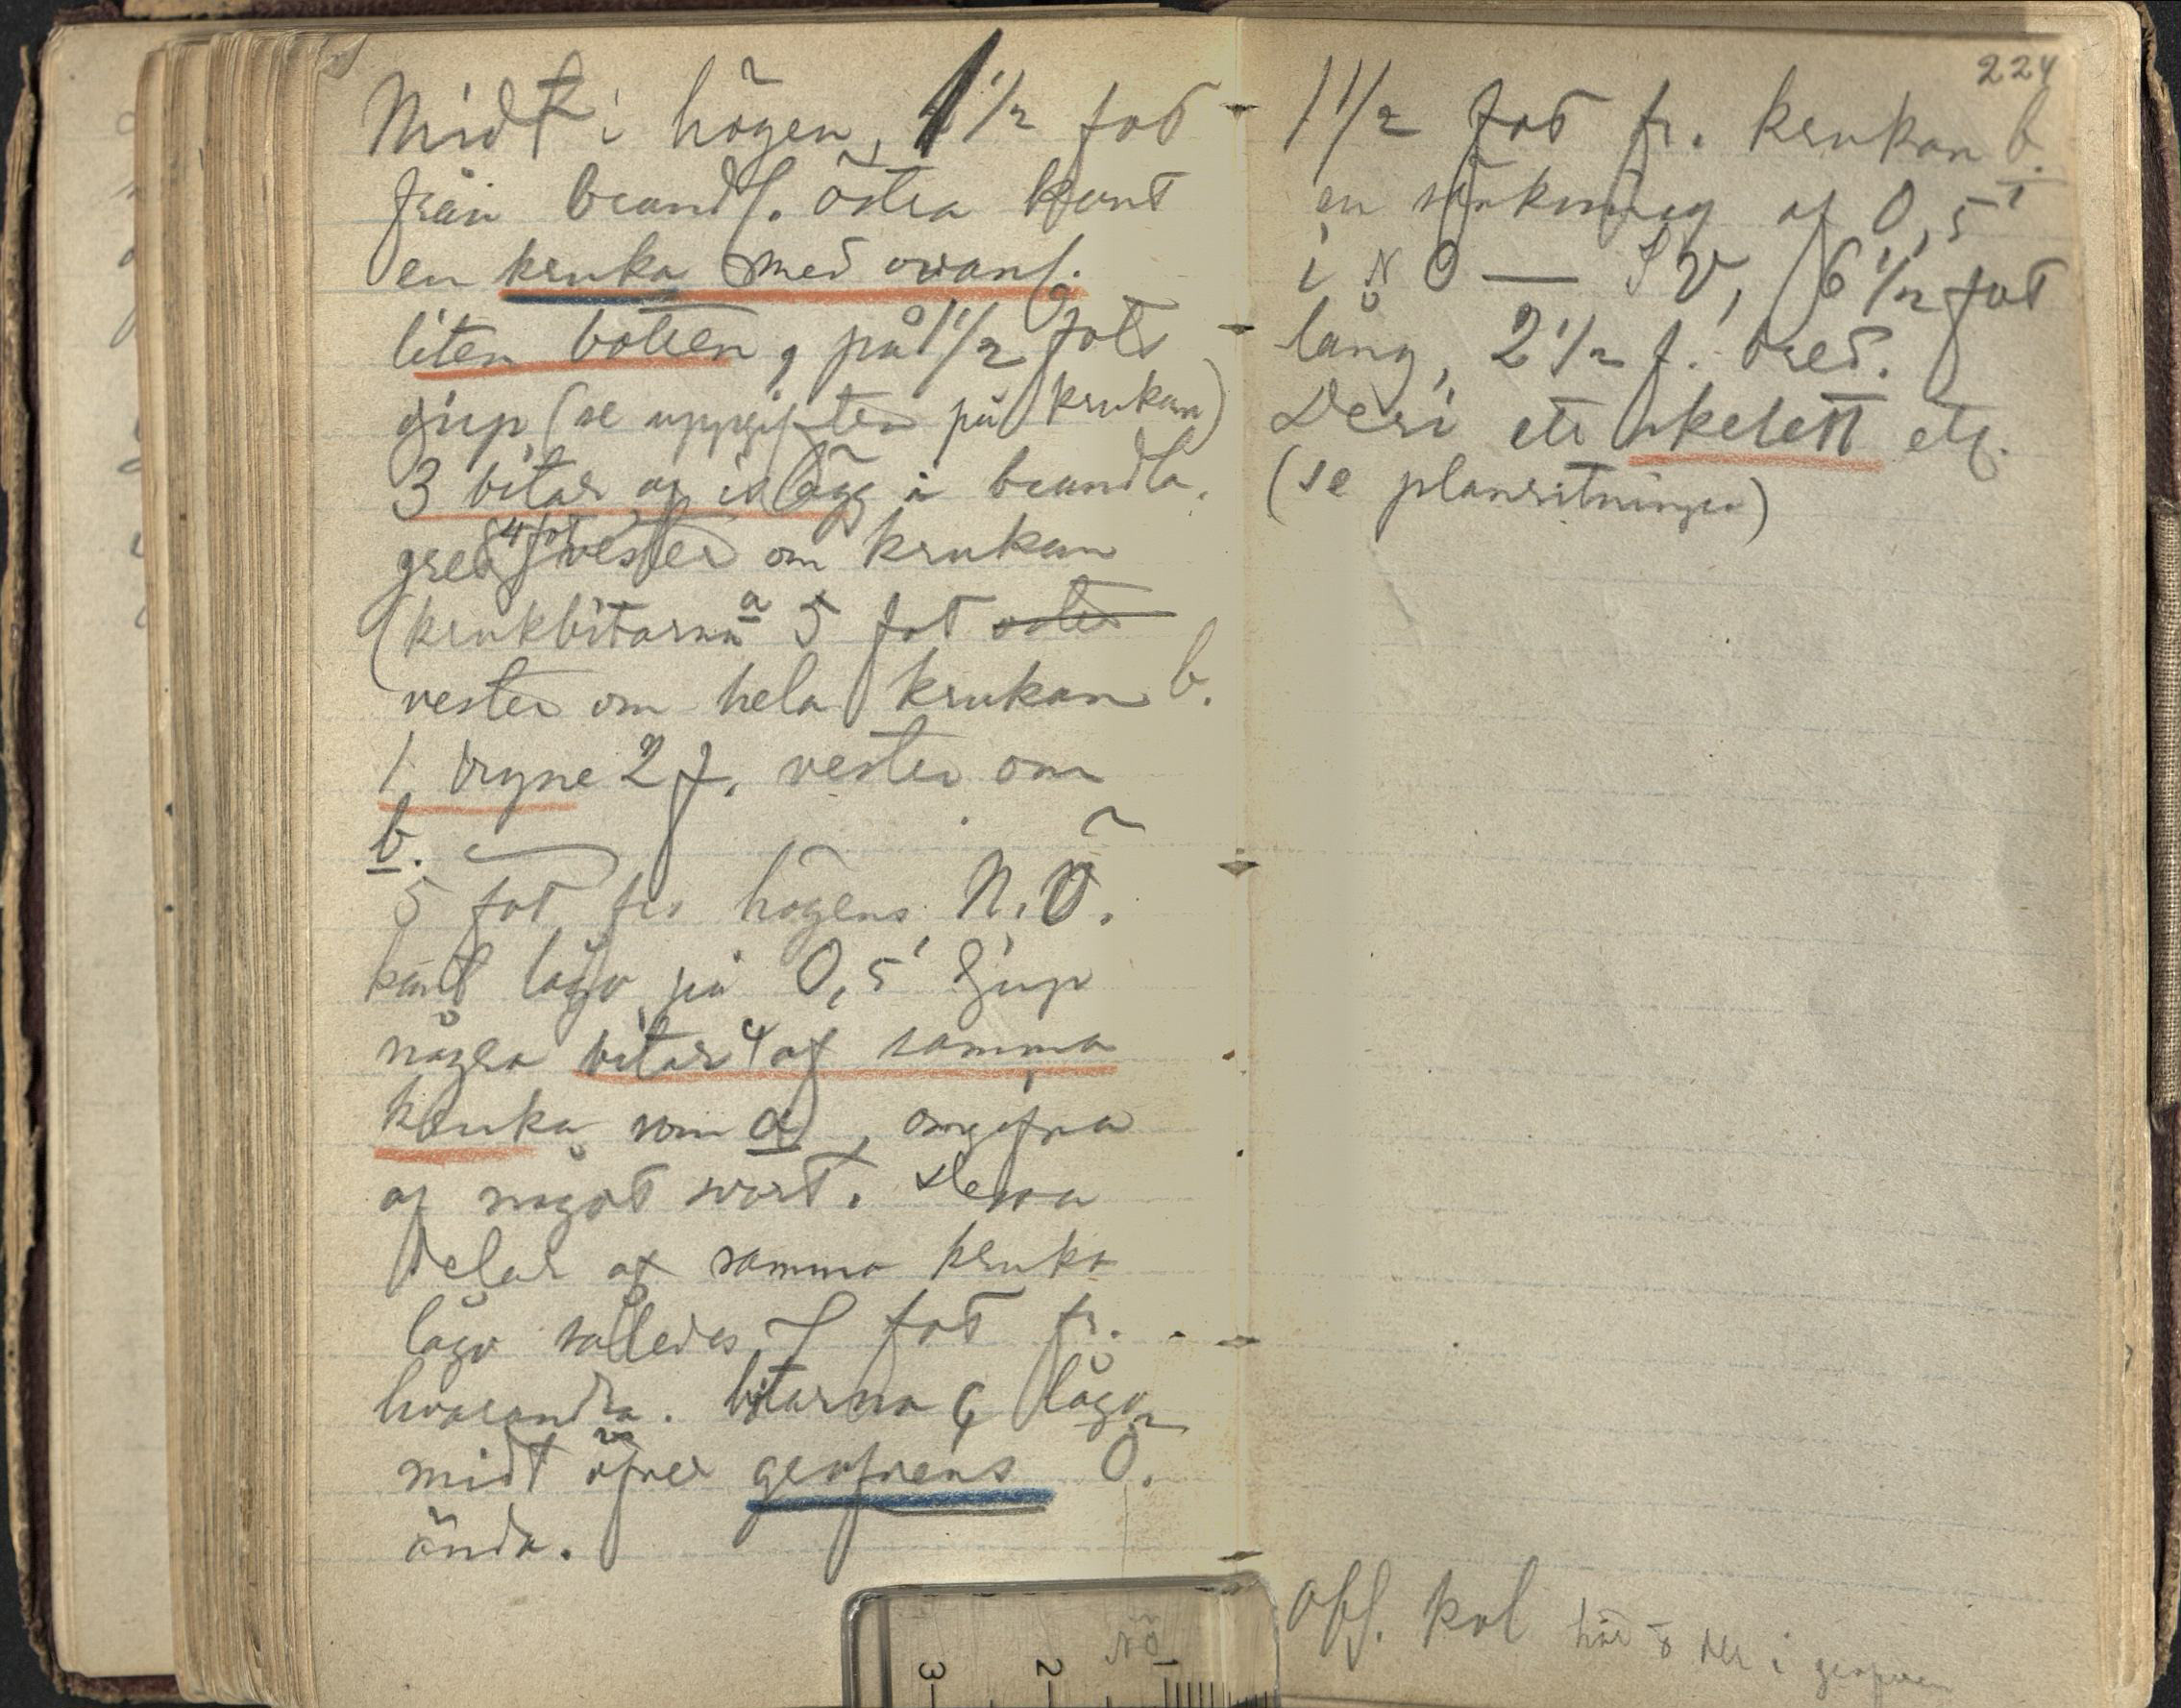 Midt i högen, 1 1/2 fot
från brandl. östra kant
en kruka med ovanl.
liten botten, på 1 1/2 fots
djup, (se uppgiften på krukan)
3 bitar af islägg i brandla.
gret 4 fot vester om krukan
(krukbitarna a 5 fot öster
vester om hela krukan b.
1 bryne 2 f. vester om
b.
5 fot fr. högens N.Ö.
kant lågo på 0,5' djup
några bitar 4 af samma
kruka som a, omgifna
af något svart. Dessa
delar af samma kruka
lågo således 7 fot fr.
hvarandra. bitarna lågo
midt öfver grafvens Ö.
ända.
224
1 1/2 fot fr. krukan b.
en sänkning af 0,5'
i NO — SV, 6 1/2 fot
lång, 2 1/2 f. bred.
Deri ett skelett etc.
(se planritningen)
Obs. kol här o der i grafven
NÖ
3 2 1